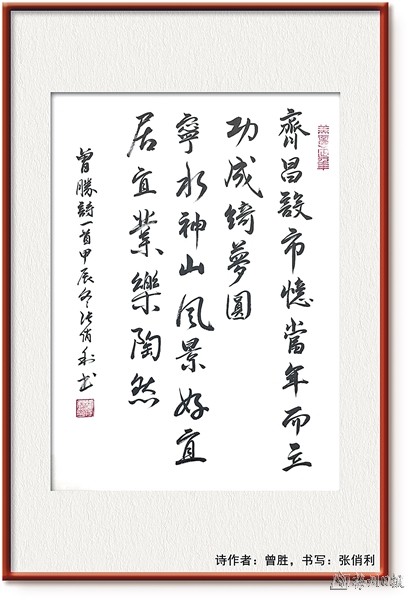 齊昌設市憶當年而立
功成綺夢圓
寧水神山風景好宜
居宜業樂陶然
曾勝詩一首甲辰冬張俏利书
诗作者：曾胜，书写：张俏利
梅州日报